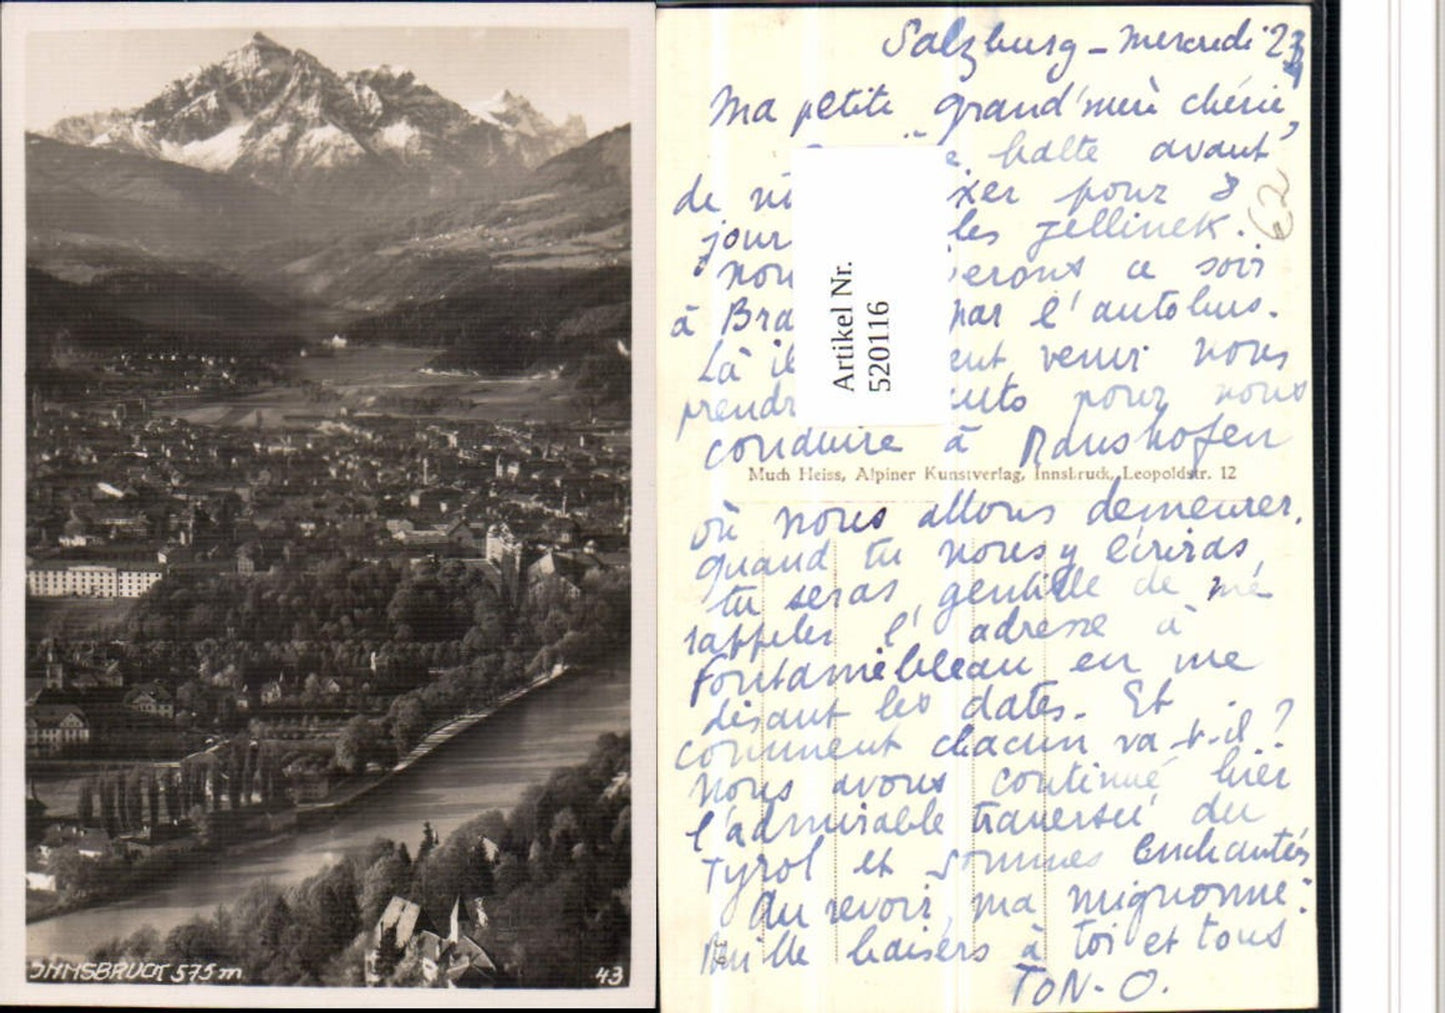 INNSBRUCK 575 m
43
Salzburg - mercredi 23
Ma petite grand'mère chérie,
halte avant
de xer pour 8
jour les Jellinek.
nou eront ce soir
à Bra par l'autobus.
Là il ent venir nous
prendr pour nous
conduire à Ranshofen
où nous allons demeurer.
quand tu nous y écriras,
tu seras gentille de me
rappeler l'adresse à
Fontainebleau en me
disant les dates. Et
comment chacun va-t-il ?
Nous avons continué hier
l'admirable traversée du
Tyrol et sommes enchantés
Au revoir, ma mignonne :
Mille baisers à toi et tous
TON. O.
62
Artikel Nr.
520116
Much Heiss, Alpiner Kunstverlag, Innsbruck, Leopoldstr. 12